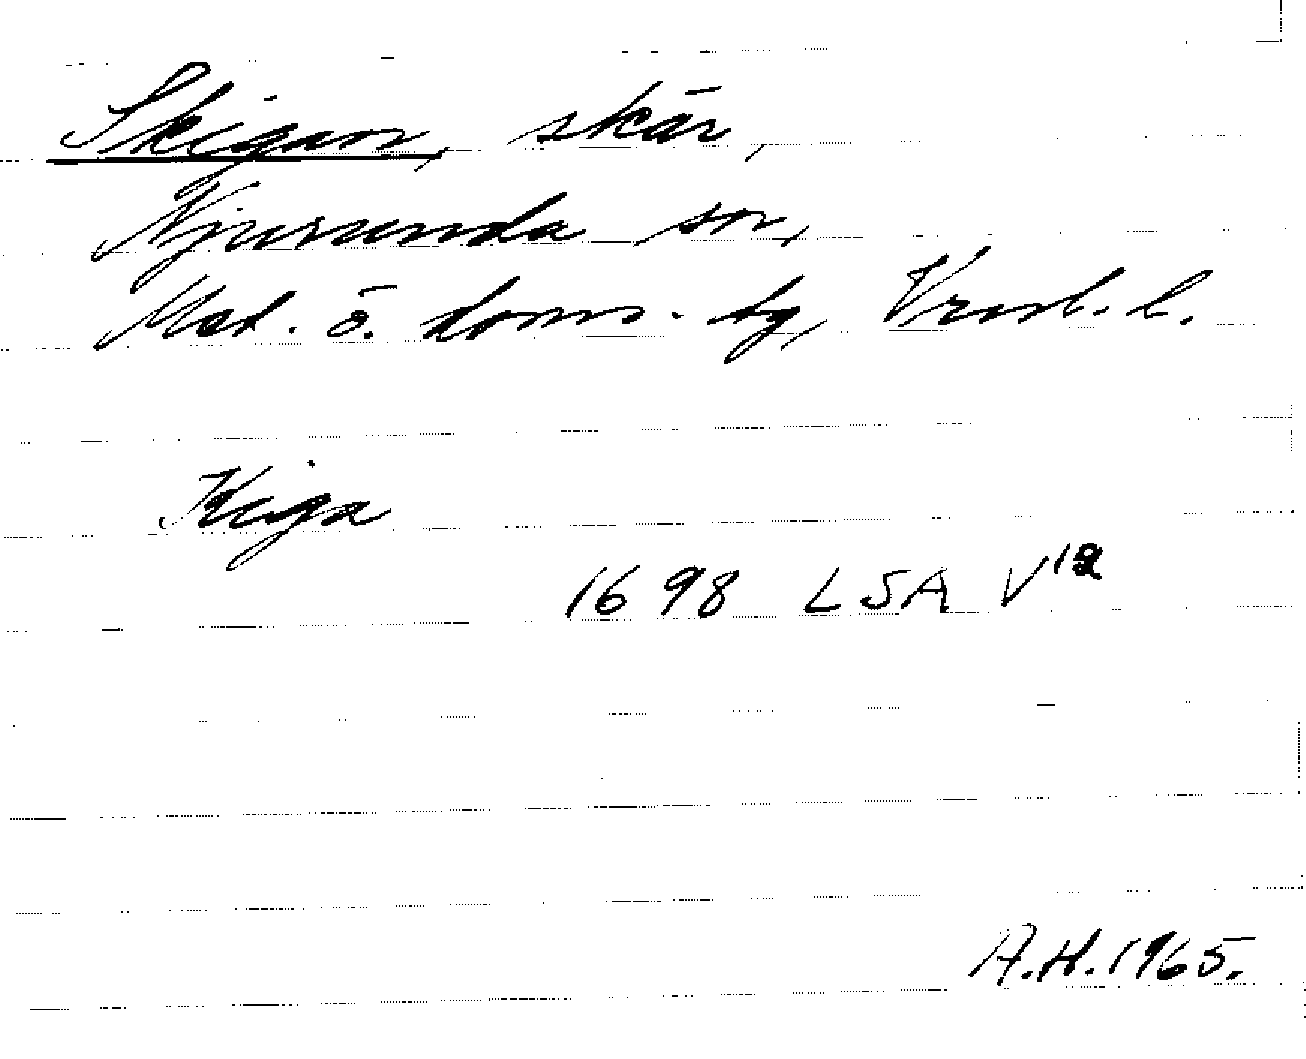 Skigan, skär,
Njurunda sn,
Med. ö. doms.-tg, Vnrl. l.
Kiga
1698 LSA V 12
A.H. 1965.